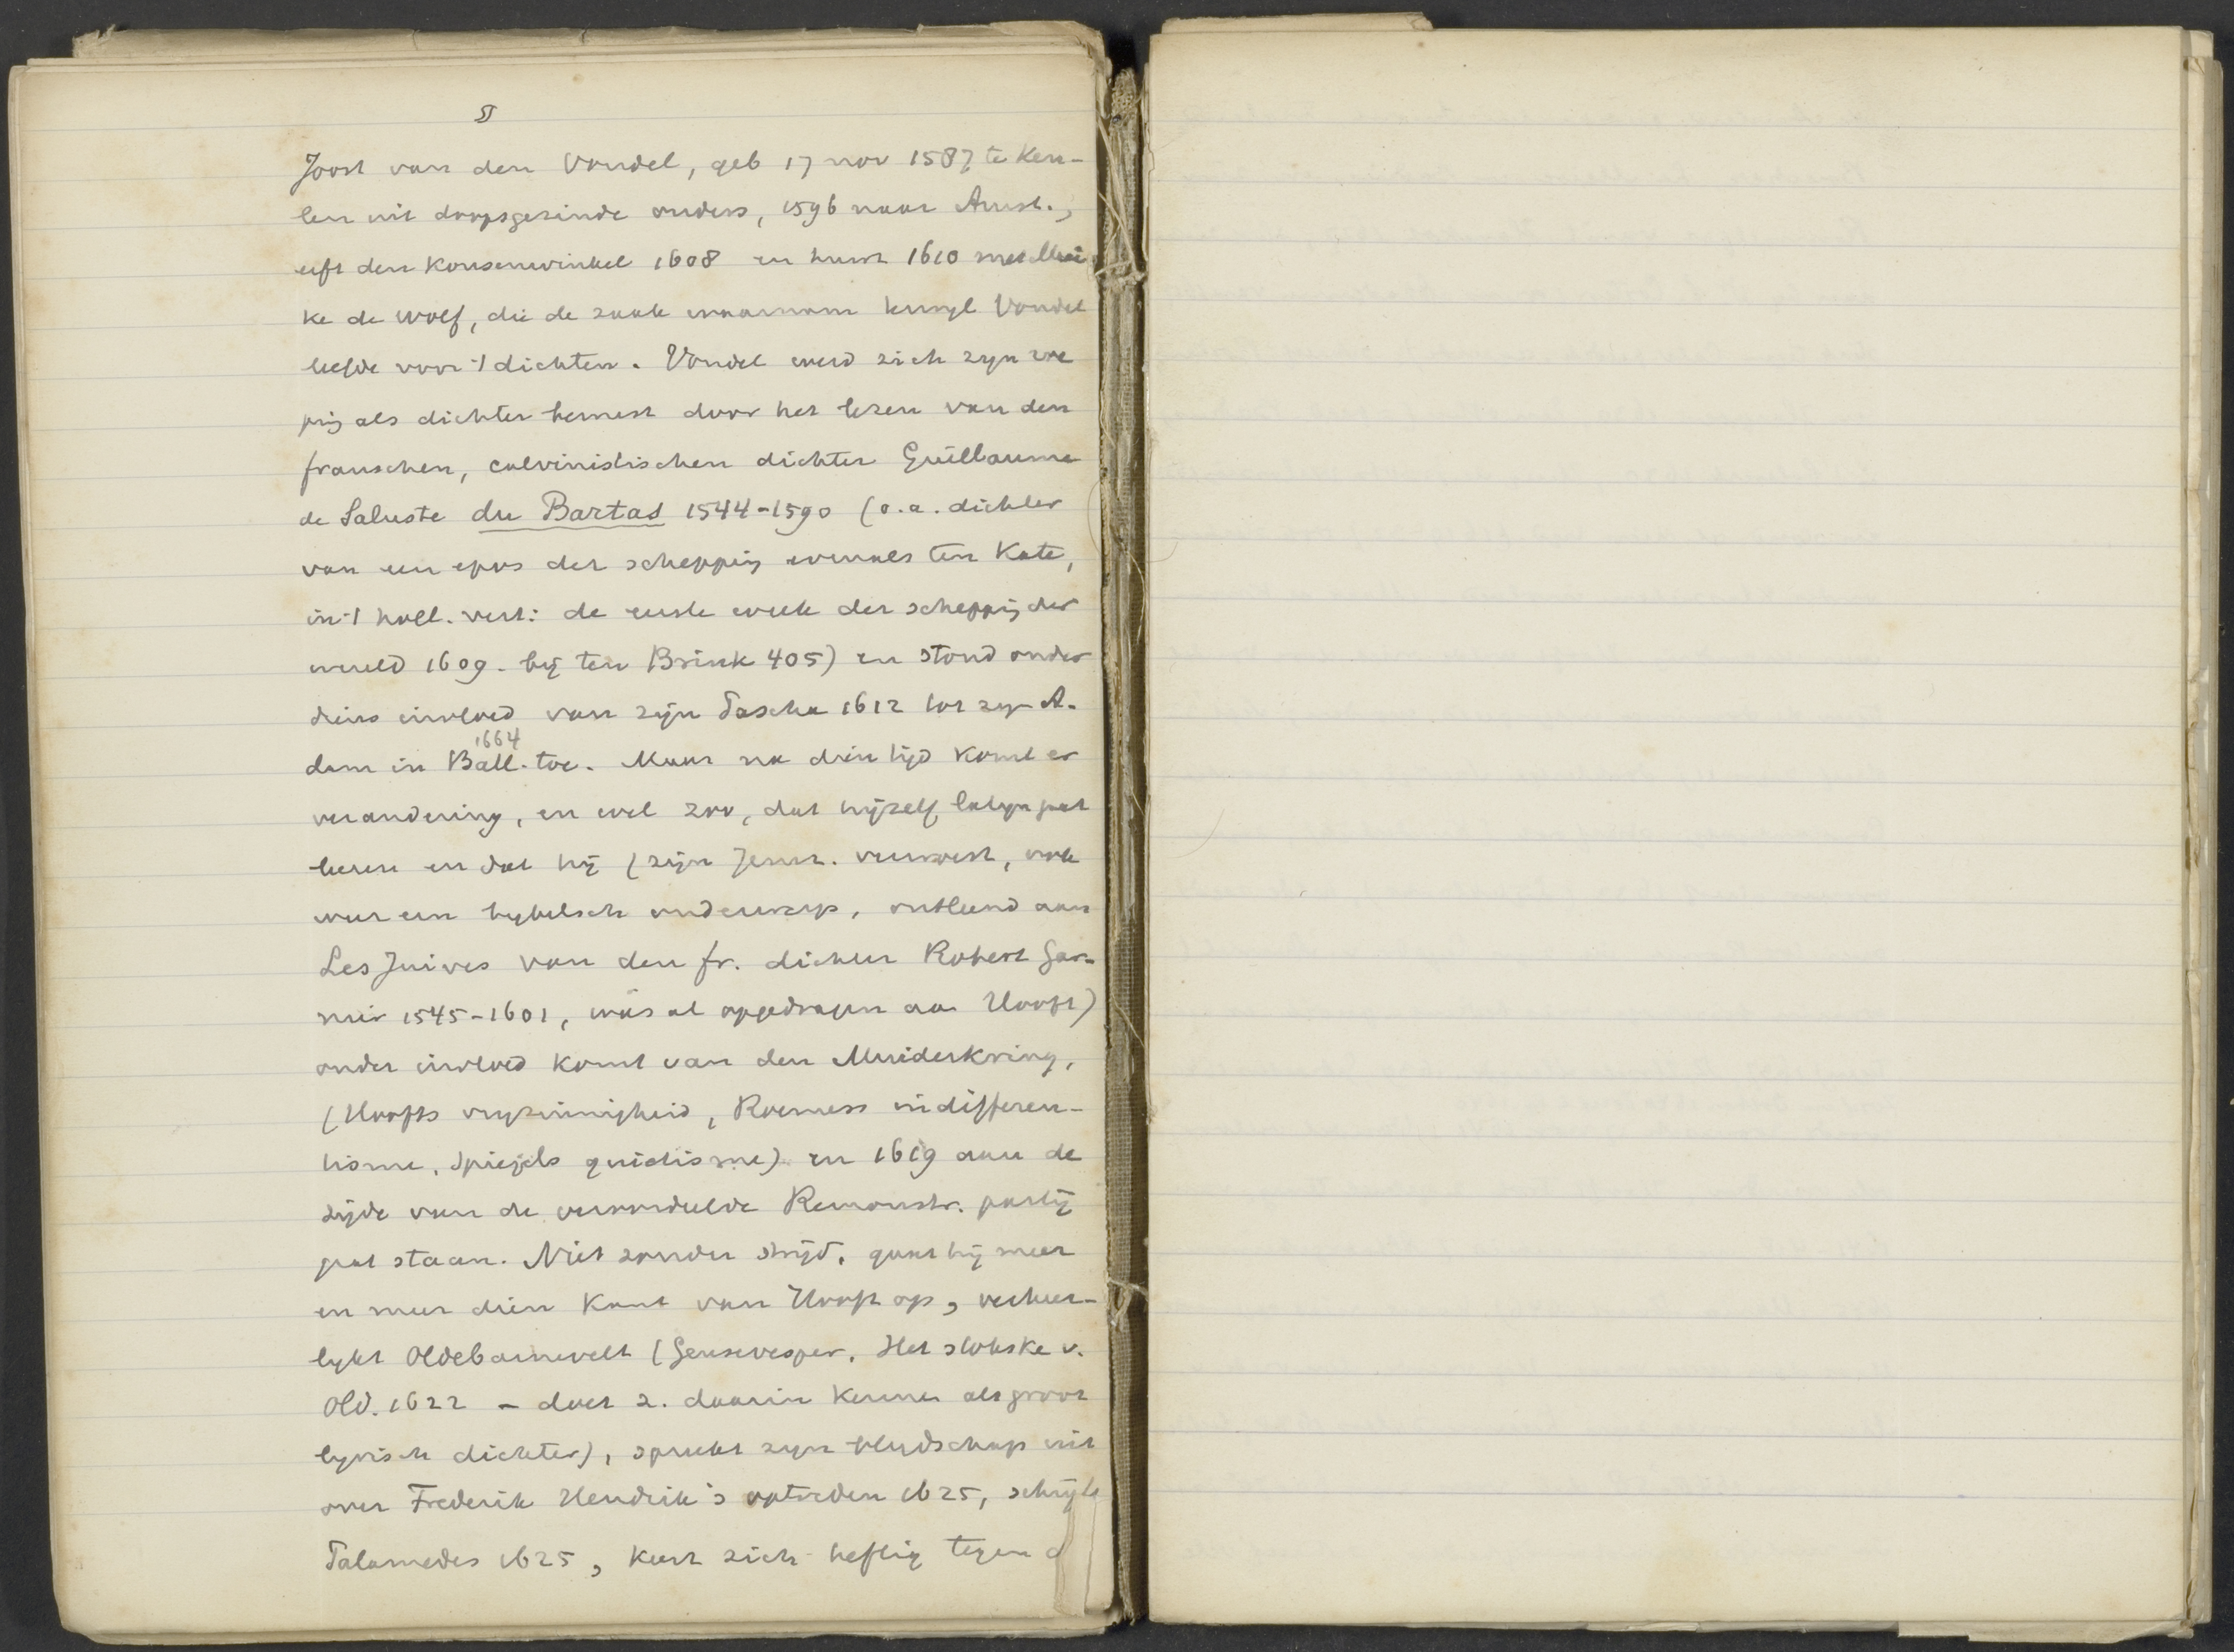 5
Joost van den Vondel, geb 17 nov 1587 te Keu-
len uit doopsgezinde ouders, 1596 naar Amst.,
erft den kousenwinkel 1608 en huwt 1610 met Maai
ke de Wolf, die de zaak waarnam terwyl Vondel
leefde voor 't dichten. Vondel werd zich zyn roe
ping als dichter bewust door het lezen van den
franschen, calvinistischen dichter Guillaume
de Saluste du Bartas 1544-1590 (o.a. dichter
van een epos der schepping evenals ten Kate,
in 't holl. vert: de eerste week der schepping der
wereld 1609. bij ten Brink 405) en stond onder
diens invloed van zijn Pascha 1612 tot zyn A-
dam in Ball. 1664 toe. Maar na dien tijd komt er
verandering, en wel zoo, dat hijzelf latyn gaat
leeren en dat hij (zijn Jeruz. verwoest, ook
weer een bybelsch onderwerp, ontleend aan
Les Juives van den fr. dichter Robert Gar-
nier 1545-1601, was al opgedragen aan Hooft)
onder invloed komt van den Muiderkring,
(Hoofts vryzinnigheid, Roemers indifferen-
tisme, Spiegels quietisme) en 1619 aan de
zijde van de veroordeelde Remonstr. partij
gaat staan. Niet zonder strijd, gaat hij meer
en meer dien kant van Hooft op, verheer-
lykt Oldebarnevelt (Geusevesper, Het stokske v.
Old. 1622 - doet z. daarin kennen als groot
lyrisch dichter), spreekt zyn blydschap uit
over Frederik Hendrik's optreden 1625, schrijft
Palamedes 1625, keert zich heftig tegen d